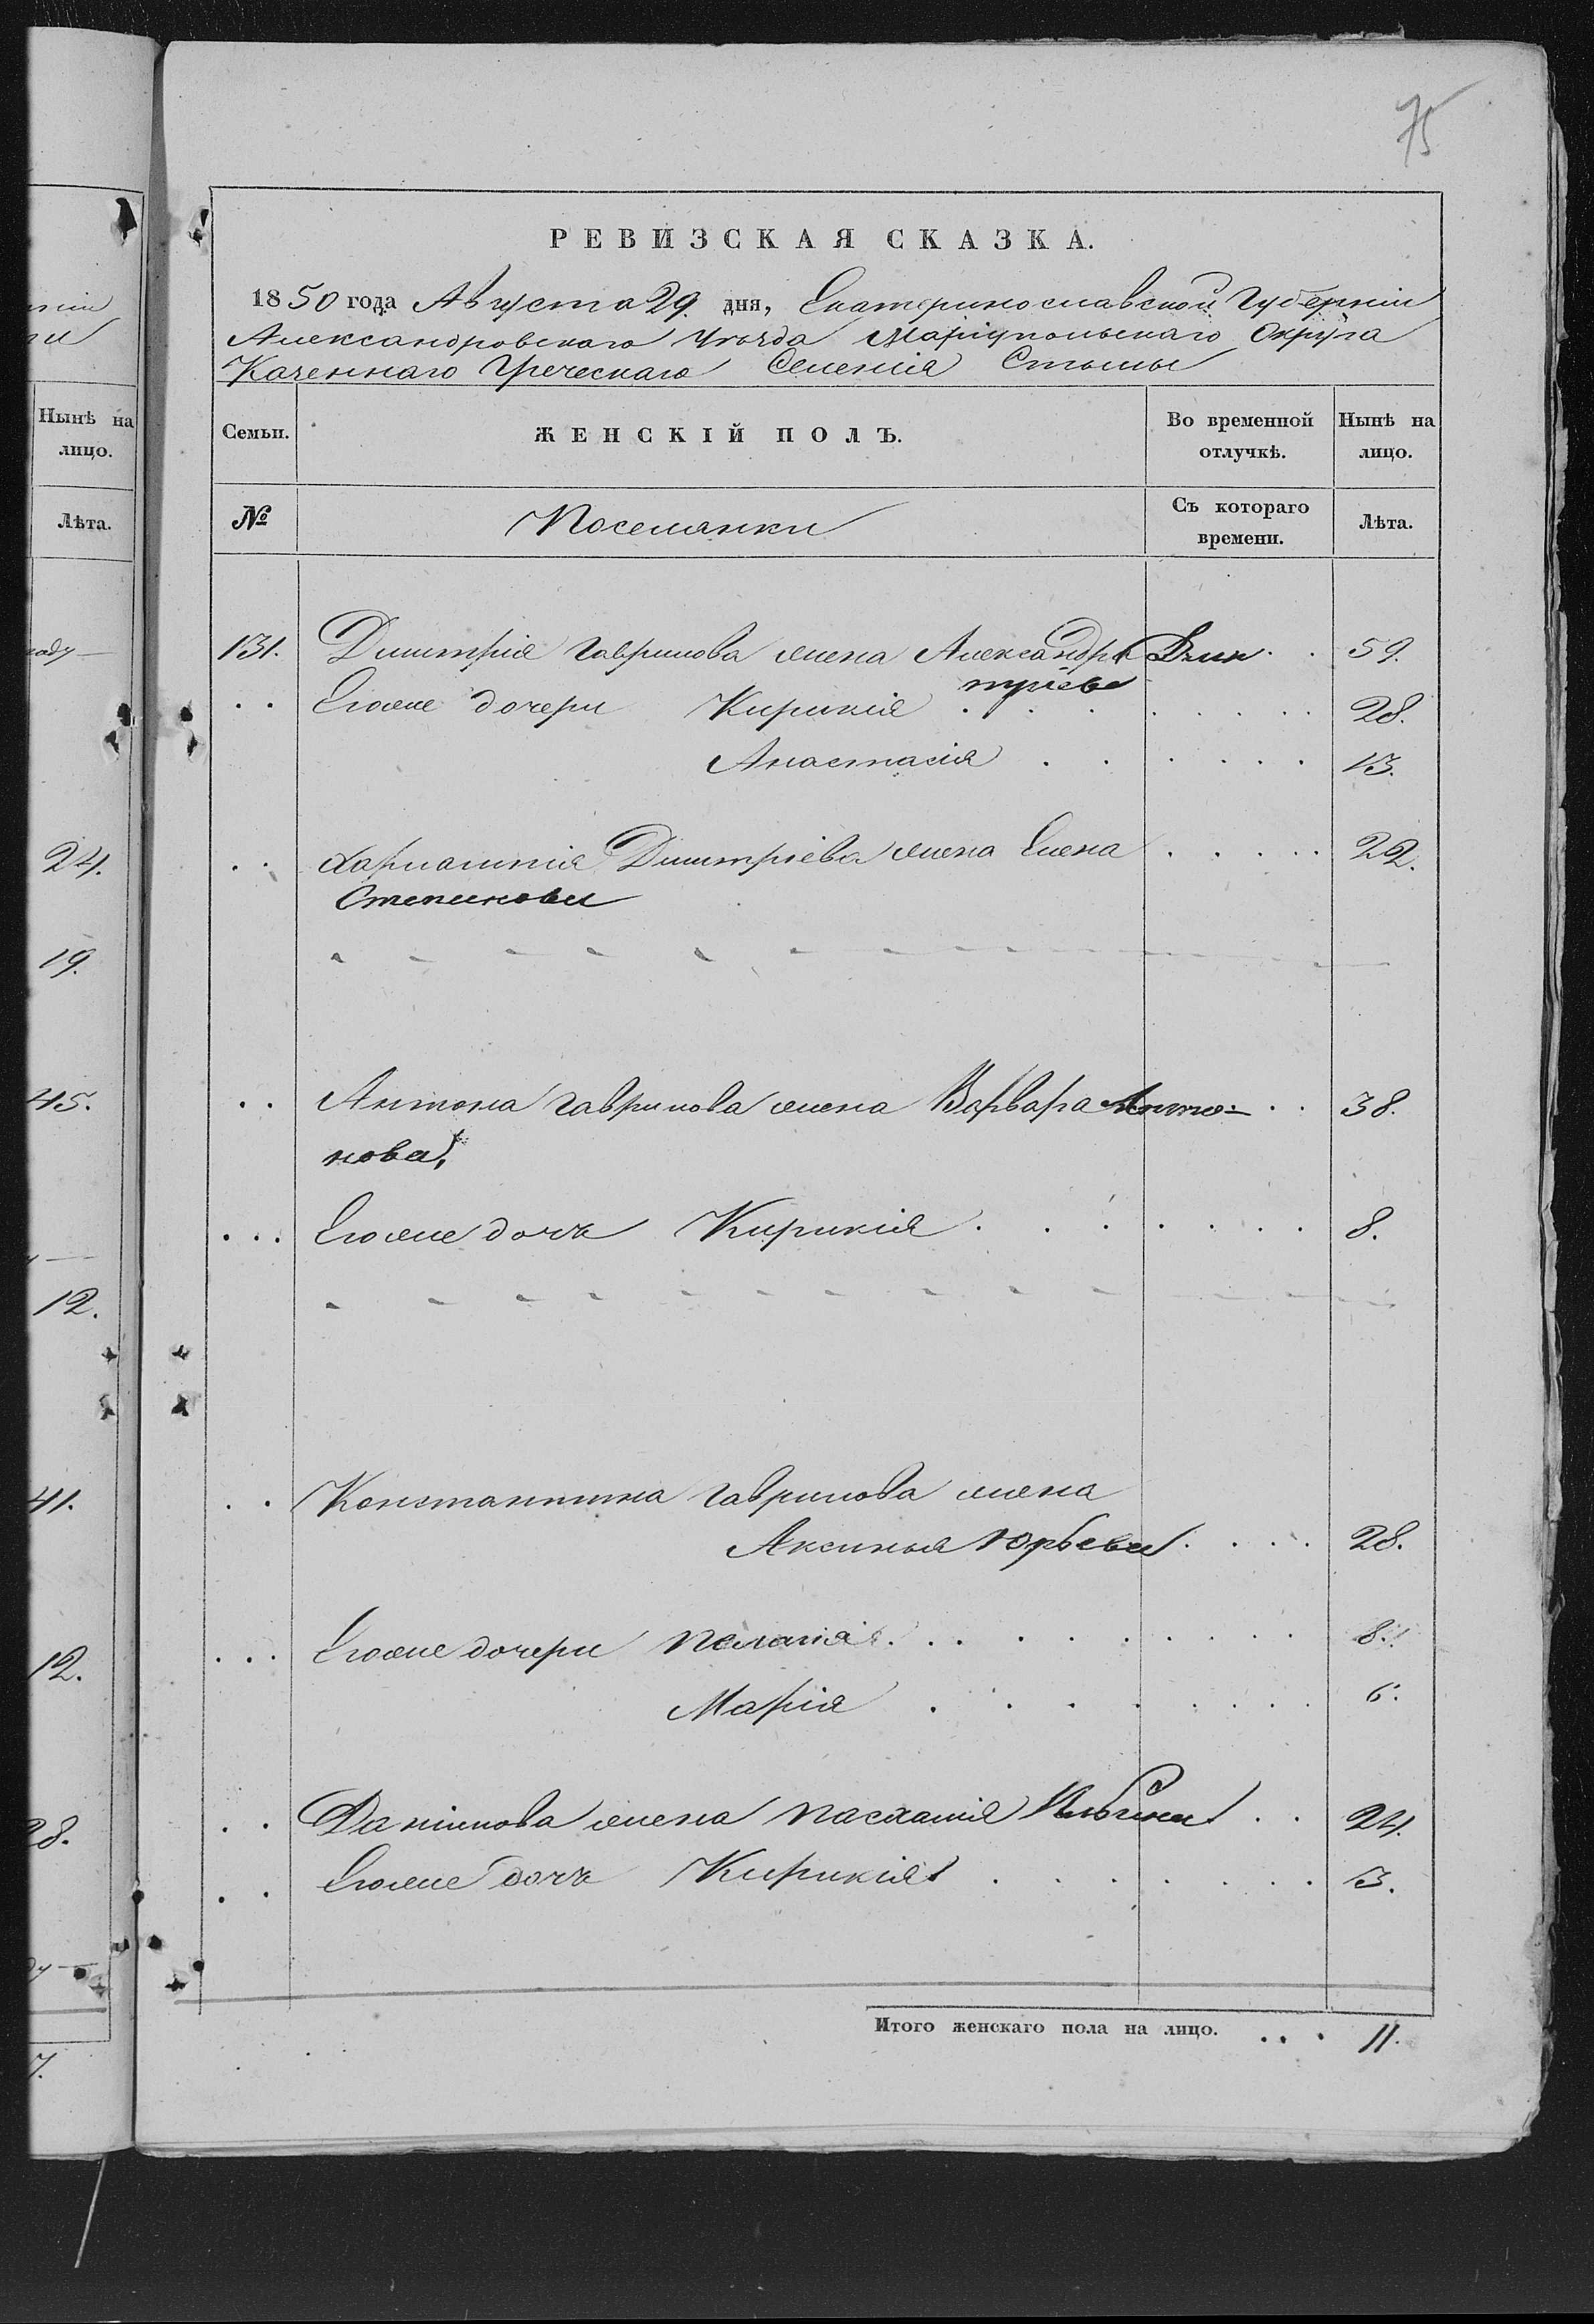 75
РЕВИЗСКАЯ СКАЗКА.
1850 года Августа 29. дня, Екатеринославской Губерніи
Александровскаго Уѣзда Маріупольскаго Округа
Казеннаго Греческаго Селенія Стылы
Семьи.
ЖЕНСКІЙ ПОЛЪ.
Во временной отлучкѣ.
Нынѣ на лицо.
№
Поселянки
Съ котораго времени.
Лѣта.
131. Дмитрія Гаврилова жена Александра Дми . . 59.
тріева
. . Егоже дочери Кирикія . . . . . . . . 28.
Анастасія . . . . . . 13.
. . Харлампія Дмитріева жена Елена . . . . . 22.
Степанова
. . Антона Гаврилова жена Варвара Анто= . . 38.
нова,
. . . Егоже дочь Кирикія . . . . . . . 8.
. . Константина Гаврилова жена
Аксинья Юрьева . . . . 28.
. . . Егоже дочери Пелагія . . . . . . . . . 8.
Марія . . . . . . . 6.
. . Данилова жена Пасхалія Ильина . . 24.
. . Егоже дочь Кирикія . . . . . . . 3.
Итого женскаго пола на лицо. . . . 11.
Нынѣ на
лицо.
Лѣта.
24.
19.
45.
12.
41.
12.
28.
7.